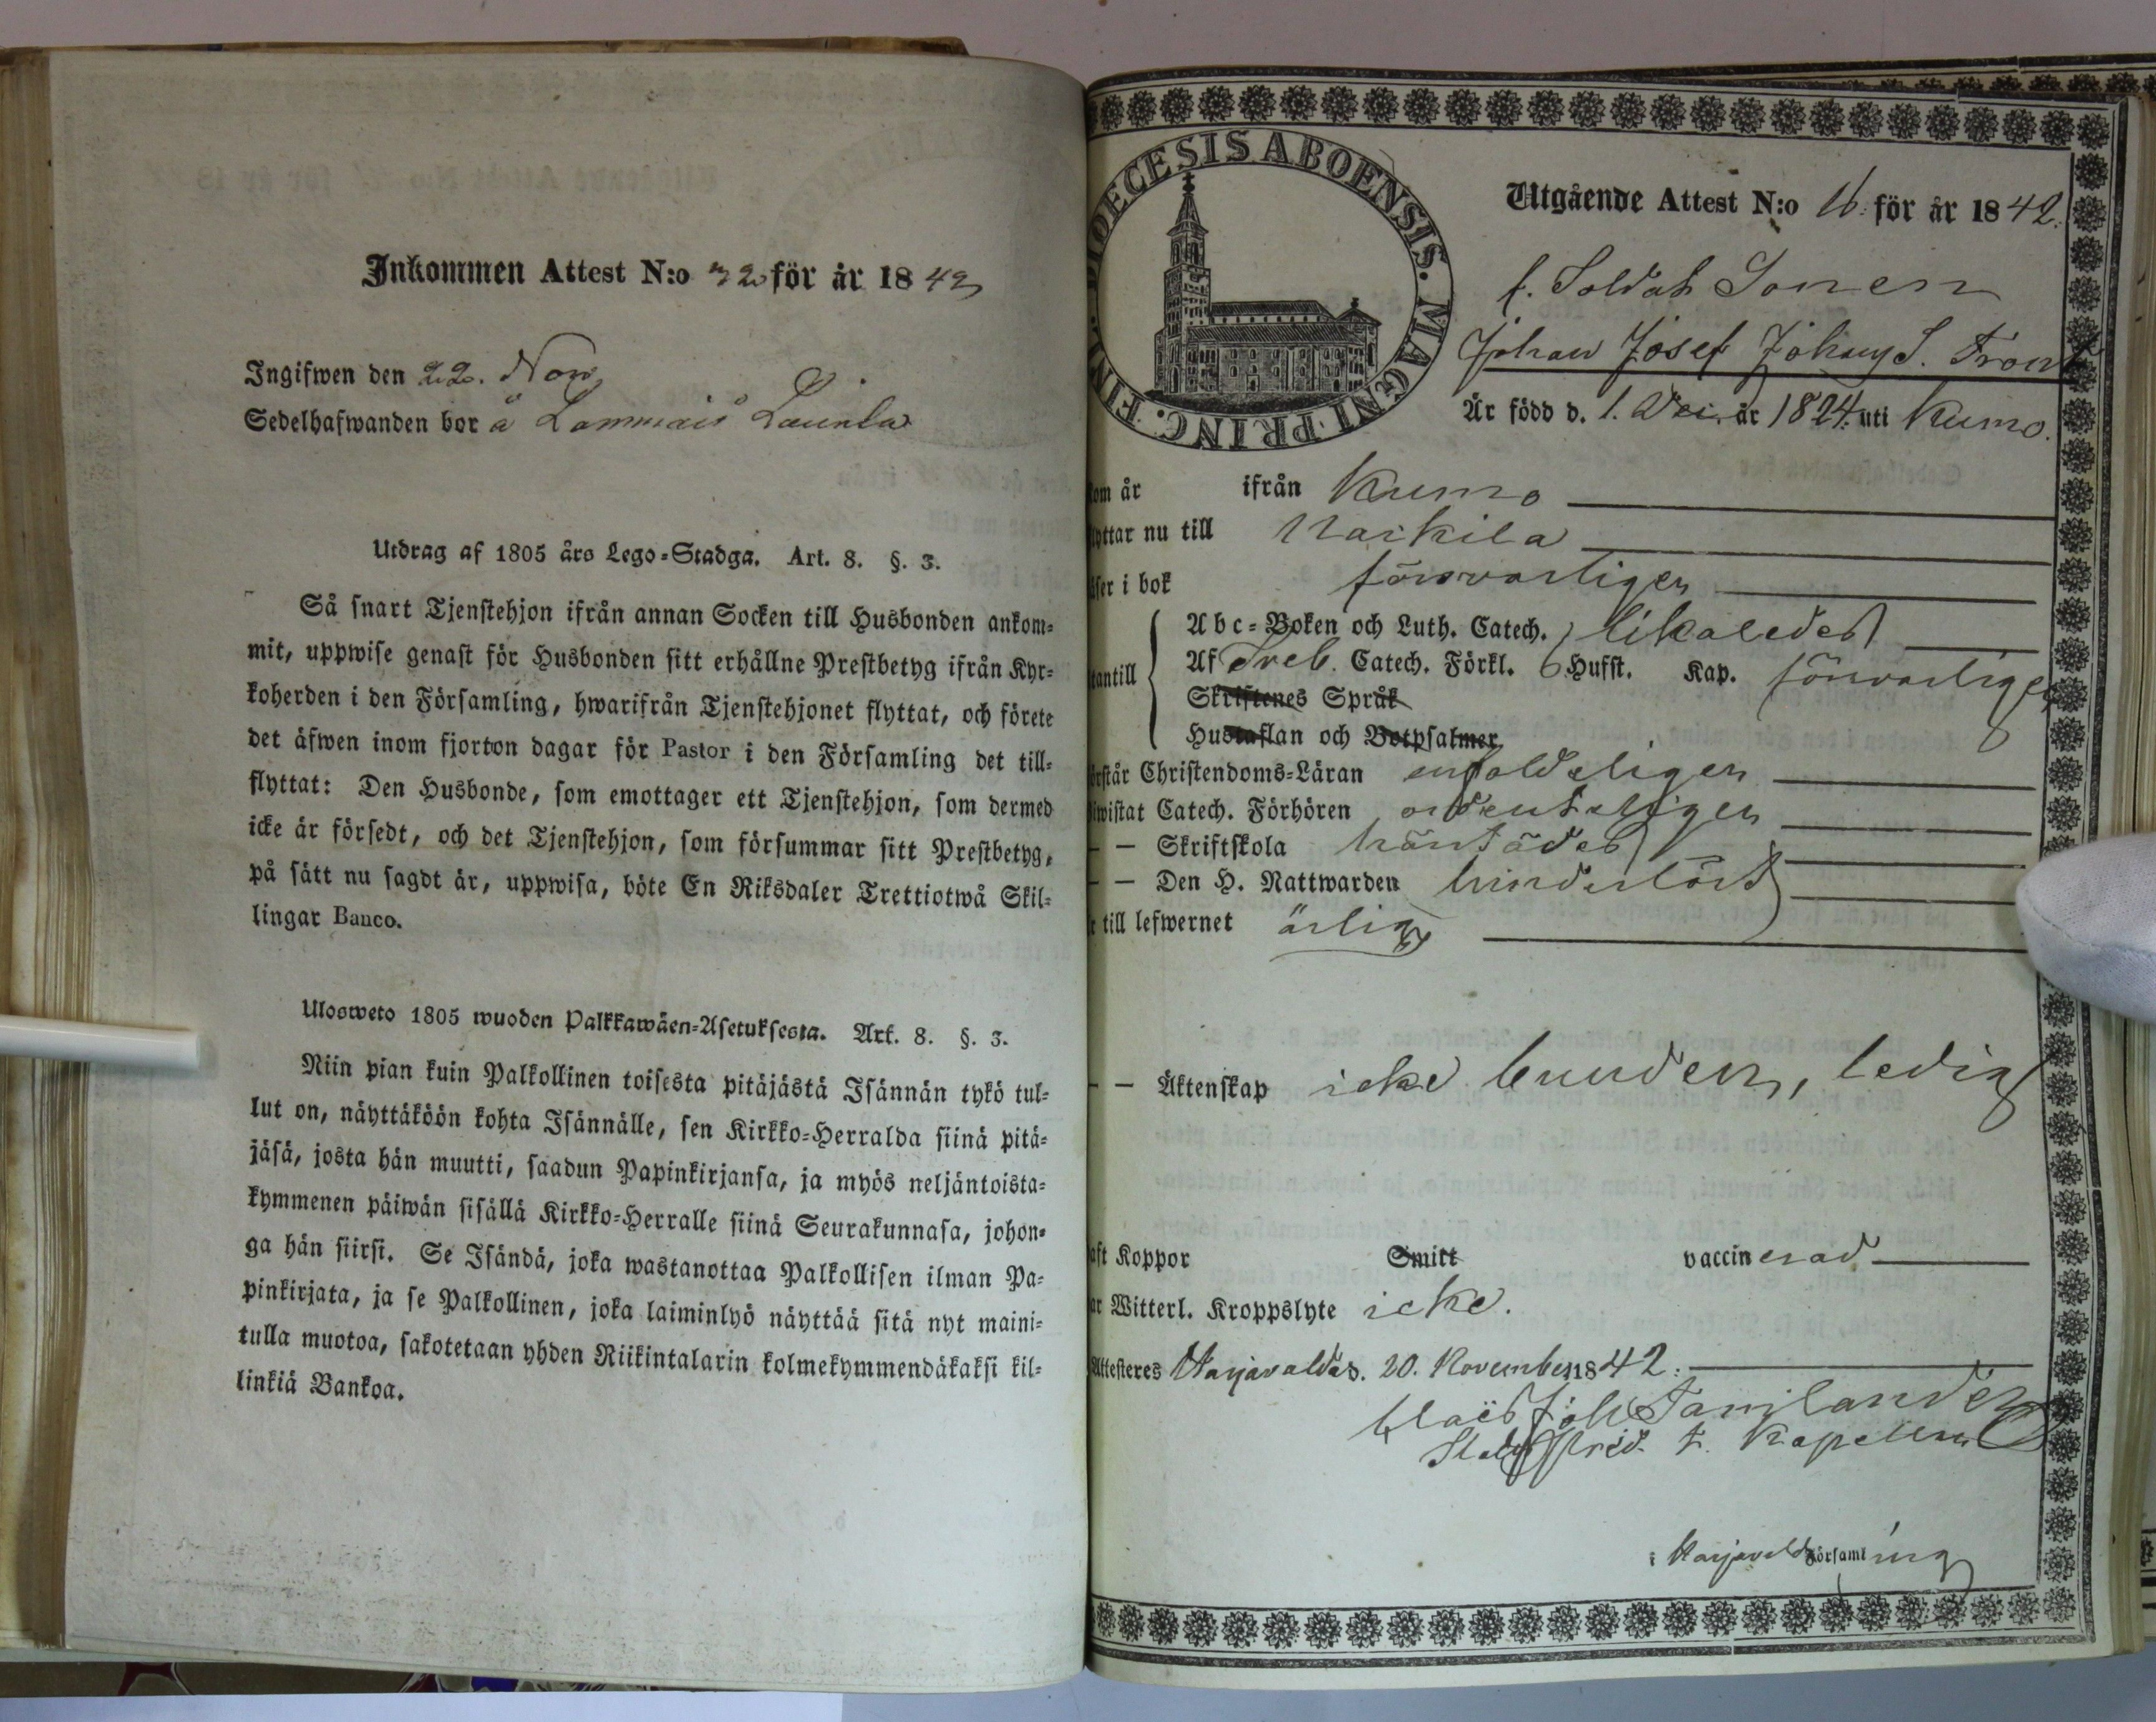 Inkommen Attest N:o 32 för år 1842
Ingifwen den 22. Nov.
Sedelhafwanden bor å Lammais Launla
Utdrag af 1805 års Lego-Stadga. Art. 8. §. 3.
Så snart Tjenstehjon ifrån annan Socken till Husbonden ankom-
mit, uppwise genast för Husbonden sitt erhållne Prestbetyg ifrån Kyr-
koherden i den Församling, hwarifrån Tjenstehjonet flyttat, och förete
det äfwen inom fjorton dagar för Pastor i den Församling det till-
flyttat: Den Husbonde, som emottager ett Tjenstehjon, som dermed
icke är försedt, och det Tjenstehjon, som försummar sitt Prestbetyg,
på sätt nu sagdt är, uppwisa, böte En Riksdaler Trettiotwå Skil-
lingar Banco.
Ulosweto 1805 wuoden Palkkawäen-Asetuksesta. Art. 8. §. 3.
Niin pian kuin Palkollinen toisesta pitäjästä Isännän tykö tul-
lut on, näyttäköön kohta Isännälle, sen Kirkko-Herralda siinä pitä-
jäsä, josta hän muutti, saadun Papinkirjansa, ja myös neljäntoista-
kymmenen päiwän sisällä Kirkko-Herralle siinä Seurakunnasa, johon-
ga hän siirsi. Se Isändä, joka wastanottaa Palkollisen ilman Pa-
pinkirjata, ja se Palkollinen, joka laiminlyö näyttää sitä nyt maini-
tulla muotoa, sakotetaan yhden Riikintalarin kolmekymmendäkaksi kil-
linkiä Bankoa.
DIOECESIS ABOENSIS. MAGNI PRINC. FINL.
Utgående Attest N:o 16. för år 1842.
f. Soldat Sonen
Johan Josef Johans S. Tron
Är född d. 1. Dec. år 1824. uti Kumo.
kom år ifrån Kumo
lyttar nu till Nakkila
äser i bok försvarligen
tantill
Abc-Boken och Luth. Catech. likaledes
Af Sveb. Catech. Förkl. 6 Hufst. Kap. försvarligen
Skriftenes Språk
Hustaflan och Botpsalmer
örstår Christendoms-Läran enfaldeligen
iwistat Catech. Förhören ordenteligen
– – Skriftskola
– – Den H. Nattwarden hinderlöst
r till lefwernet ärlig
– – Äktenskap icke bunden, ledig
aft Koppor Smitt vaccinerad
ar Witterl. Kroppslyte icke.
Attesteres Harjavalda d. 20. November 1842.
Claës Joh. Tamlander
Kapellan
i Harjavalda Församling